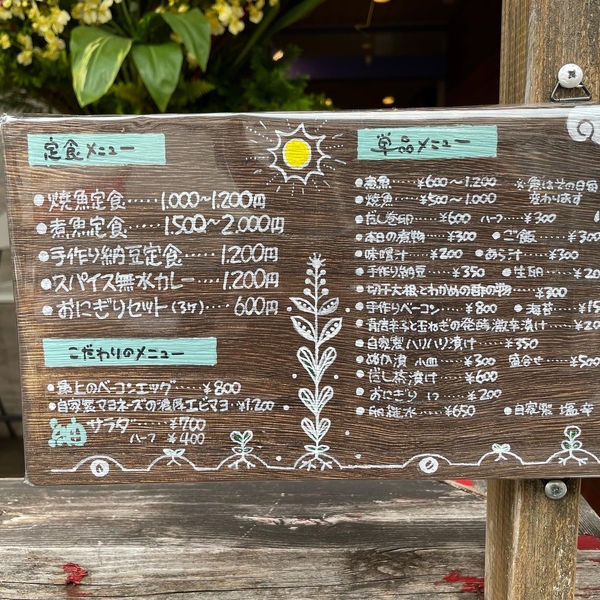 定食メニュー
●焼魚定食‥‥‥1,000〜1,200円
●煮魚定食‥‥‥1,500〜2,000円
●手作り納豆定食‥‥‥1,200円
●スパイス無水カレー‥‥1,200円
●おにぎりセット(3ケ)‥‥600円
こだわりのメニュー
●極上のベーコンエッグ‥‥‥¥800
●自家製マヨネーズの濃厚エビマヨ‥¥1,200
サラダ‥‥‥¥700
ハーフ ¥400
単品メニュー
●煮魚‥‥¥600〜1,200 ※魚はその日毎
●焼魚‥‥¥500〜1,000 変わります
●だし巻卵‥‥¥600 ハーフ‥¥300
●本日の煮物‥¥300 ●ご飯‥‥¥300
●味噌汁‥‥¥200 ●あら汁‥‥¥300
●手作り納豆‥‥¥350 ●生卵‥‥¥20
●切干大根とわかめの酢の物‥‥¥300
●手作りベーコン‥‥¥800 ●海苔‥‥¥15
●青唐辛子と玉ねぎの発酵激辛漬け‥¥20
●自家製ハリハリ漬け‥‥¥350
●ぬか漬 小皿‥‥¥300 盛合せ‥‥¥500
●だし茶漬け‥‥¥600
●おにぎり‥‥¥200
●卵雑炊‥‥¥650 ●自家製 塩辛